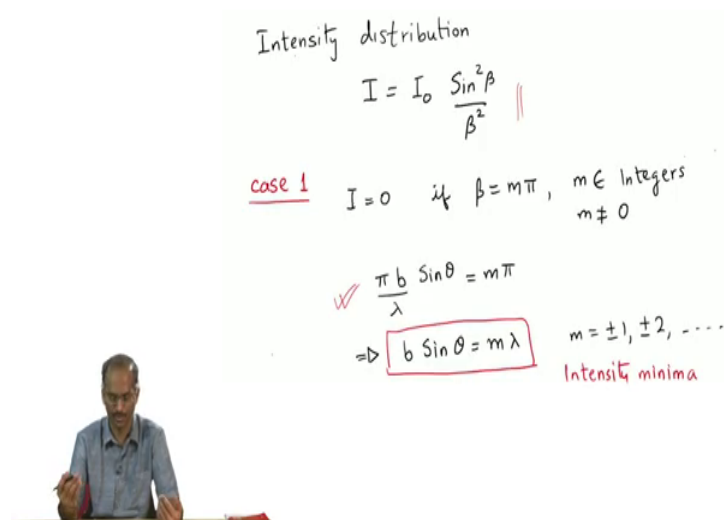 Intensity distribution
I = I₀ Sin²β / β²
case 1 I = 0 if β = mπ, m ∈ Integers
m ≠ 0
πb/λ Sinθ = mπ
⇒ b Sinθ = mλ m = ±1, ±2, ----
Intensity minima